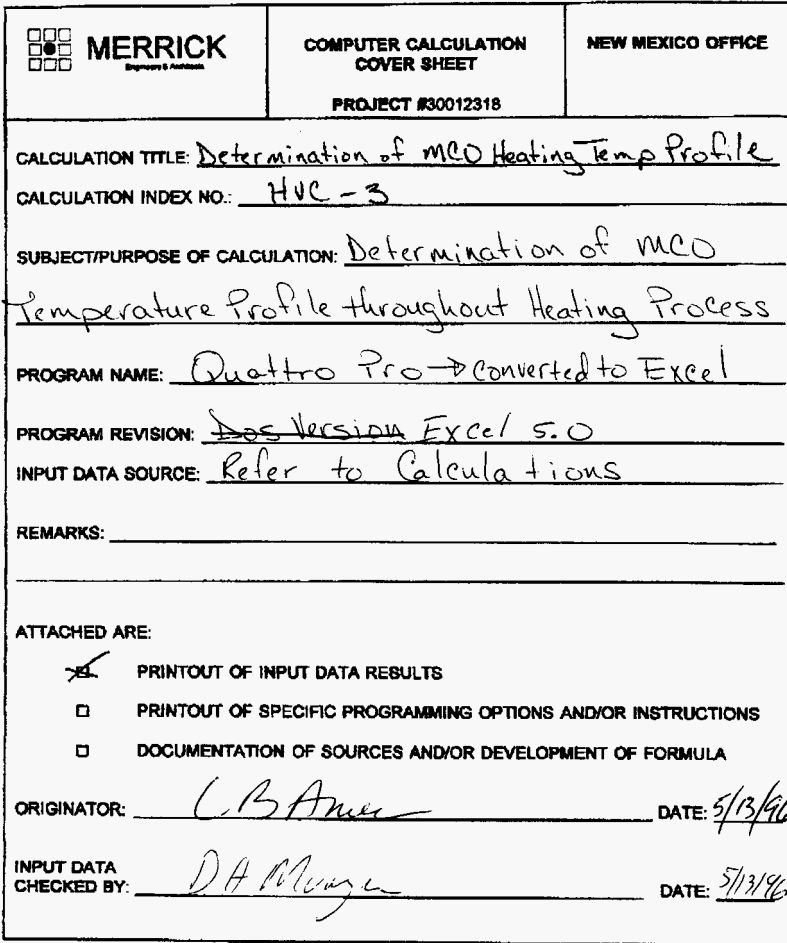 MERRICK
Engineers & Architects
COMPUTER CALCULATION
COVER SHEET
PROJECT #30012318
NEW MEXICO OFFICE
CALCULATION TITLE: Determination of MCO Heating Temp Profile
CALCULATION INDEX NO.: HVC - 3
SUBJECT/PURPOSE OF CALCULATION: Determination of MCO
Temperature Profile throughout Heating Process
PROGRAM NAME: Quattro Pro → Converted to Excel
PROGRAM REVISION: Dos Version Excel 5.0
INPUT DATA SOURCE: Refer to Calculations
REMARKS:
ATTACHED ARE:
PRINTOUT OF INPUT DATA RESULTS
PRINTOUT OF SPECIFIC PROGRAMMING OPTIONS AND/OR INSTRUCTIONS
DOCUMENTATION OF SOURCES AND/OR DEVELOPMENT OF FORMULA
ORIGINATOR: DATE: 5/13/96
INPUT DATA
CHECKED BY: DATE: 5/13/96